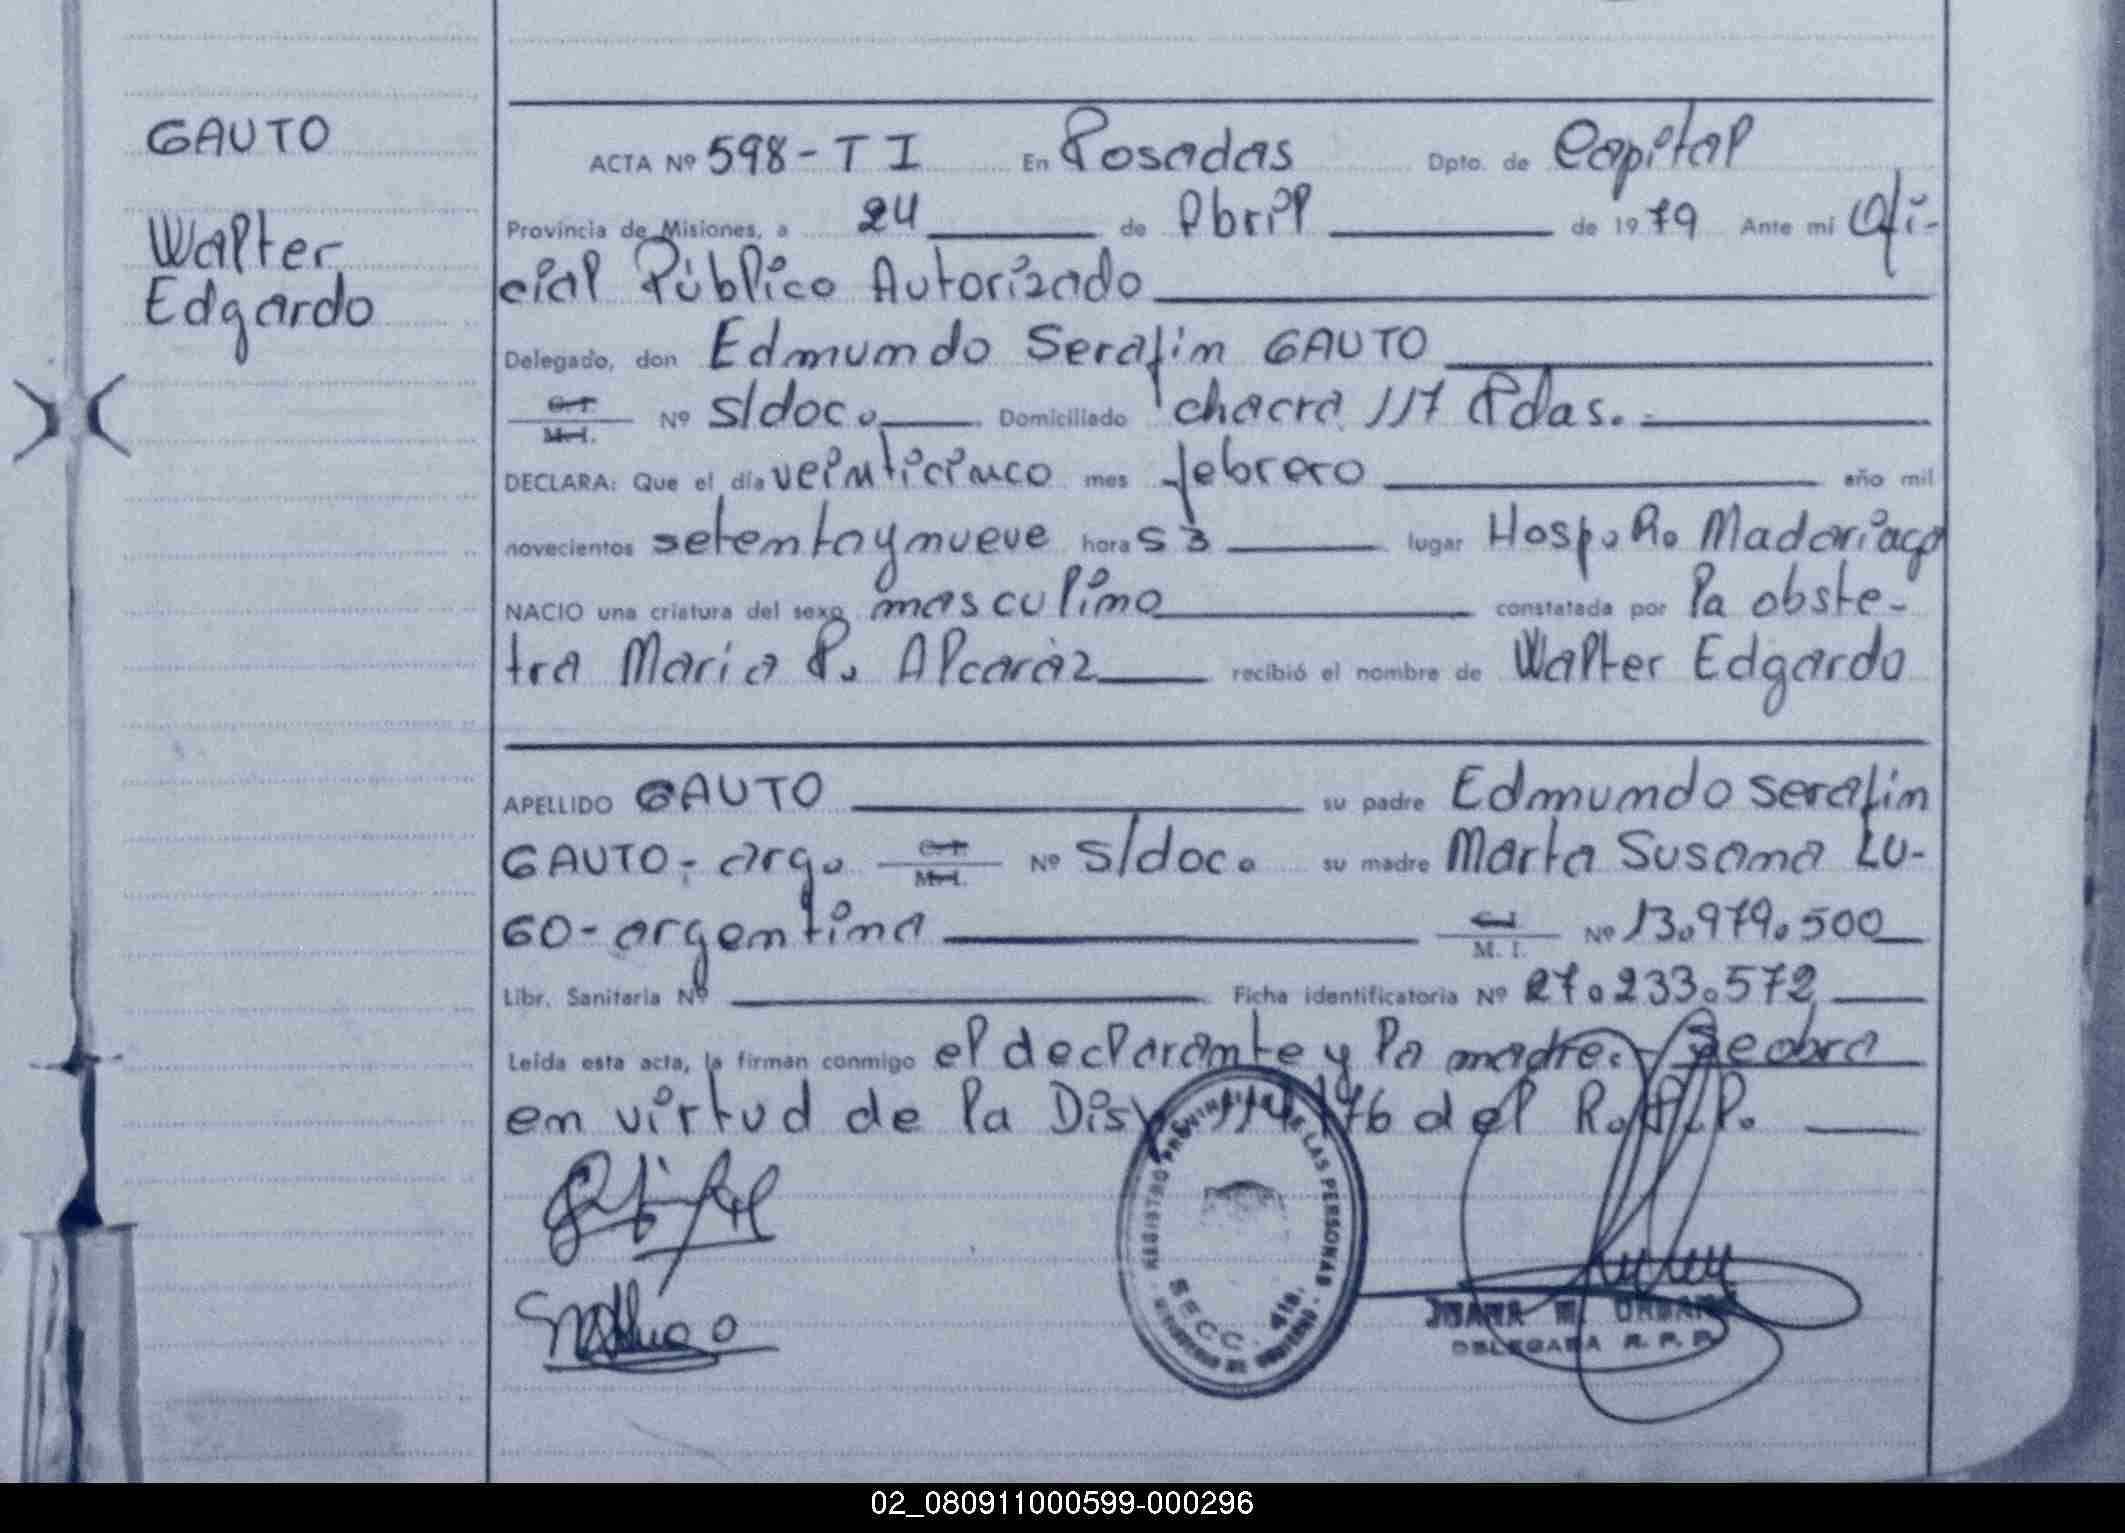 GAUTO
Walter
Edgardo
ACTA Nº 598-TI En Posadas Dpto. de Capital
Provincia de Misiones, a 24 de Abril de 1979 Ante mi Ofi-
cial Público Autorizado
Delegado, don Edmundo Serafin GAUTO
C.I. M.I. Nº s/doc. Domiciliado chacra 117 Pdas.-
DECLARA: Que el día veinticinco mes febrero año mil
novecientos setentaynueve horas 3 lugar Hosp. R. Madariaga
NACIO una criatura del sexo masculino constatada por la obste-
tra Maria P. Alcaráz recibió el nombre de Walter Edgardo
APELLIDO GAUTO su padre Edmundo Serafin
GAUTO- arg. C.I. M.I. Nº s/doc. su madre Marta Susana LU-
GO-argentina C.I. M.I. Nº 13.979.500
Libr. Sanitaria Nº Ficha identificatoria Nº 27.233.572
Leída esta acta, la firman conmigo el declarante y la madre.- Se obra
en virtud de la Disp. 114/76 del R.P.P.
REGISTRO PROVINCIAL DE LAS PERSONAS
SECC. 4ta.
MINISTERIO DE GOBIERNO
JUANA
DELEGADA R.P.P.
02_080911000599-000296